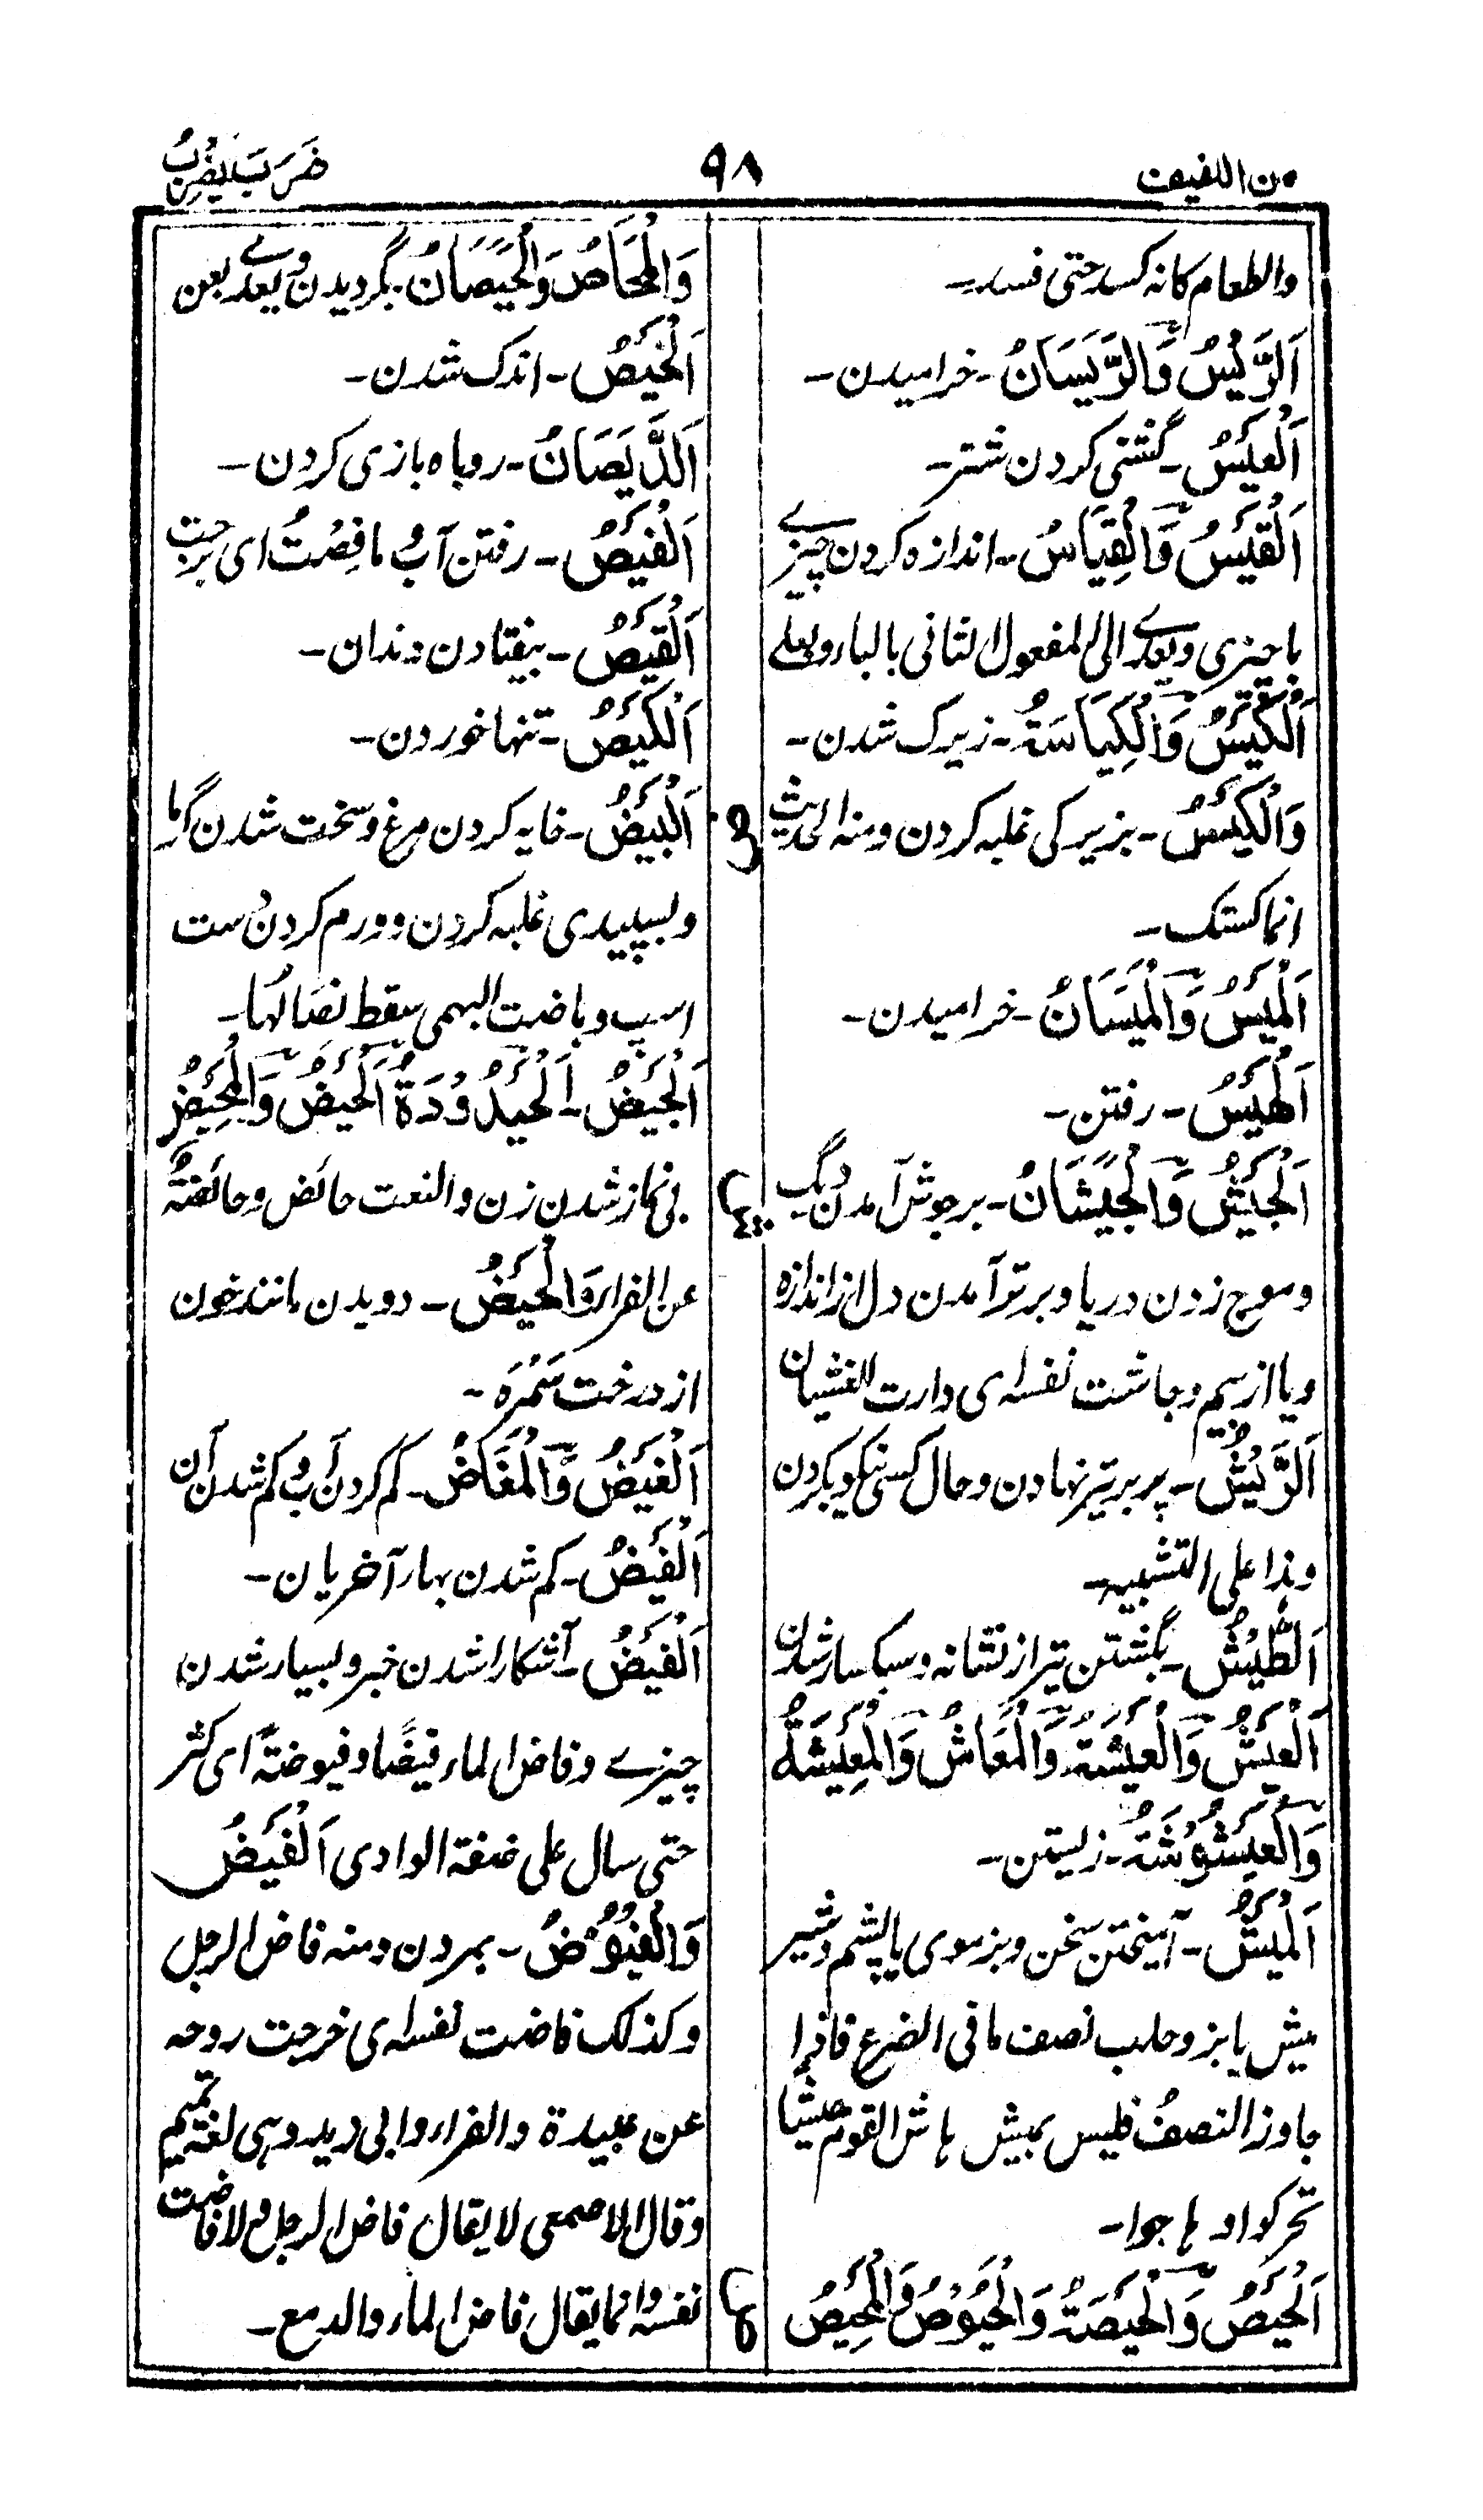 من اللفیف
۹۸
ضَرَبَ یَضْرِبُ
والطعام کانہ کسد حتی فسد۔
اَلرَّیْسُ وَالرَّیَسَانُ۔ خرامیدن۔
اَلْعَیْسُ۔ گشنی کردن شتر۔
اَلْقَیْسُ وَالْقِیَاسُ۔ اندازہ کردن چیزے
با چیزی ویعدے الی المفعول الثانی بالباء وبعلی
اَلْکَیْسُ وَالْکِیَاسَۃُ۔ زیرک شدن۔
وَالْکَیْسُ۔ بزیرکی غلبہ کردن ومنہ الحدیث
انما کستک۔
اَلْمَیْسُ وَالْمَیَسَانُ۔ خرامیدن۔
اَلْهَیْسُ۔ رفتن۔
اَلْجَیْشُ وَالْجَیَشَانُ۔ برجوش آمدن دیگ
وموج زدن دریا وبرتر آمدن دل از اندازہ
ویا از بیم وجاشت نفسہ ای دارت للغشیان
اَلرَّیْشُ۔ پر بر تیر نهادن وحال کسی نیکو بکردن
وہذا علی التشبیہ۔
اَلطَّیْشُ۔ بگشتن تیر از نشانہ وسبکسار شدن
اَلْعَیْشُ وَالْعَیْشَۃُ وَالْمَعَاشُ وَالْمَعِیْشَۃُ
وَالْعَیْشُوْشَۃُ۔ زیستن۔
اَلْمَیْشُ۔ آمیختن سخن وبز موی یا پشم وشیر
میش یا بز وحلب نصف ما فی الضرع فاذا
جاوز النصفُ فلیس بمیش هاش القوم هیشا
تحرکوا و هاجوا۔
اَلْحَیْصُ وَالْحَیْصَۃُ وَالْحُیُوْصُ وَالْمَحِیْصُ
وَالْمَحَاصُ وَالْحَیَصَانُ۔ بگردیدن ویعدے بعن
اَلْخَیْصُ۔ اندک شدن۔
اَلدَّیَصَانُ۔ روباہ بازی کردن۔
اَلْفَیْصُ۔ رفتن آب وما فِصْتُ ای برحت
اَلْقَیْصُ۔ بیفتادن دندان۔
اَلْکَیْصُ۔ تنها خوردن۔
ض
اَلْبَیْضُ۔ خایہ کردن مرغ وسخت شدن گرما
وبسپیدی غلبہ کردن وورم کردن دست
اسپ وباضت البهمی سقط نصالُها۔
اَلْجَیْضُ۔ اَلْحَیْدُوْدَۃُ اَلْحَیْضُ وَالْمَحِیْضُ
بی نماز شدن زن والنعت حائض وحائضۃٌ
عن الفراء وَالْحَیْضُ۔ دویدن مانند خون
از درخت سَمُرَہ۔
اَلْغَیْضُ وَالْمَغَاضُ۔ کم کردن آب وکم شدن آن
اَلْغَیْضُ۔ کم شدن بهاء آخریان۔
اَلْفَیْضُ۔ آشکارا شدن خبر وبسیار شدن
چیزے وفاض الماء فیضًا وفیوضۃً ای کثر
حتی سال علی ضفۃ الوادی اَلْفَیْضُ
وَالْفُیُوْضُ۔ بمردن ومنہ فاض الرجل
وکذلک فاضت نفسہ ای خرجت روحہ
عن عبیدۃ والفراء وابی زید وہی لغۃ تمیم
وقال الاصمعی لا یقال فاض الرجل ولا فاضت
نفسہ وانما یقال فاض الماء والدمع۔